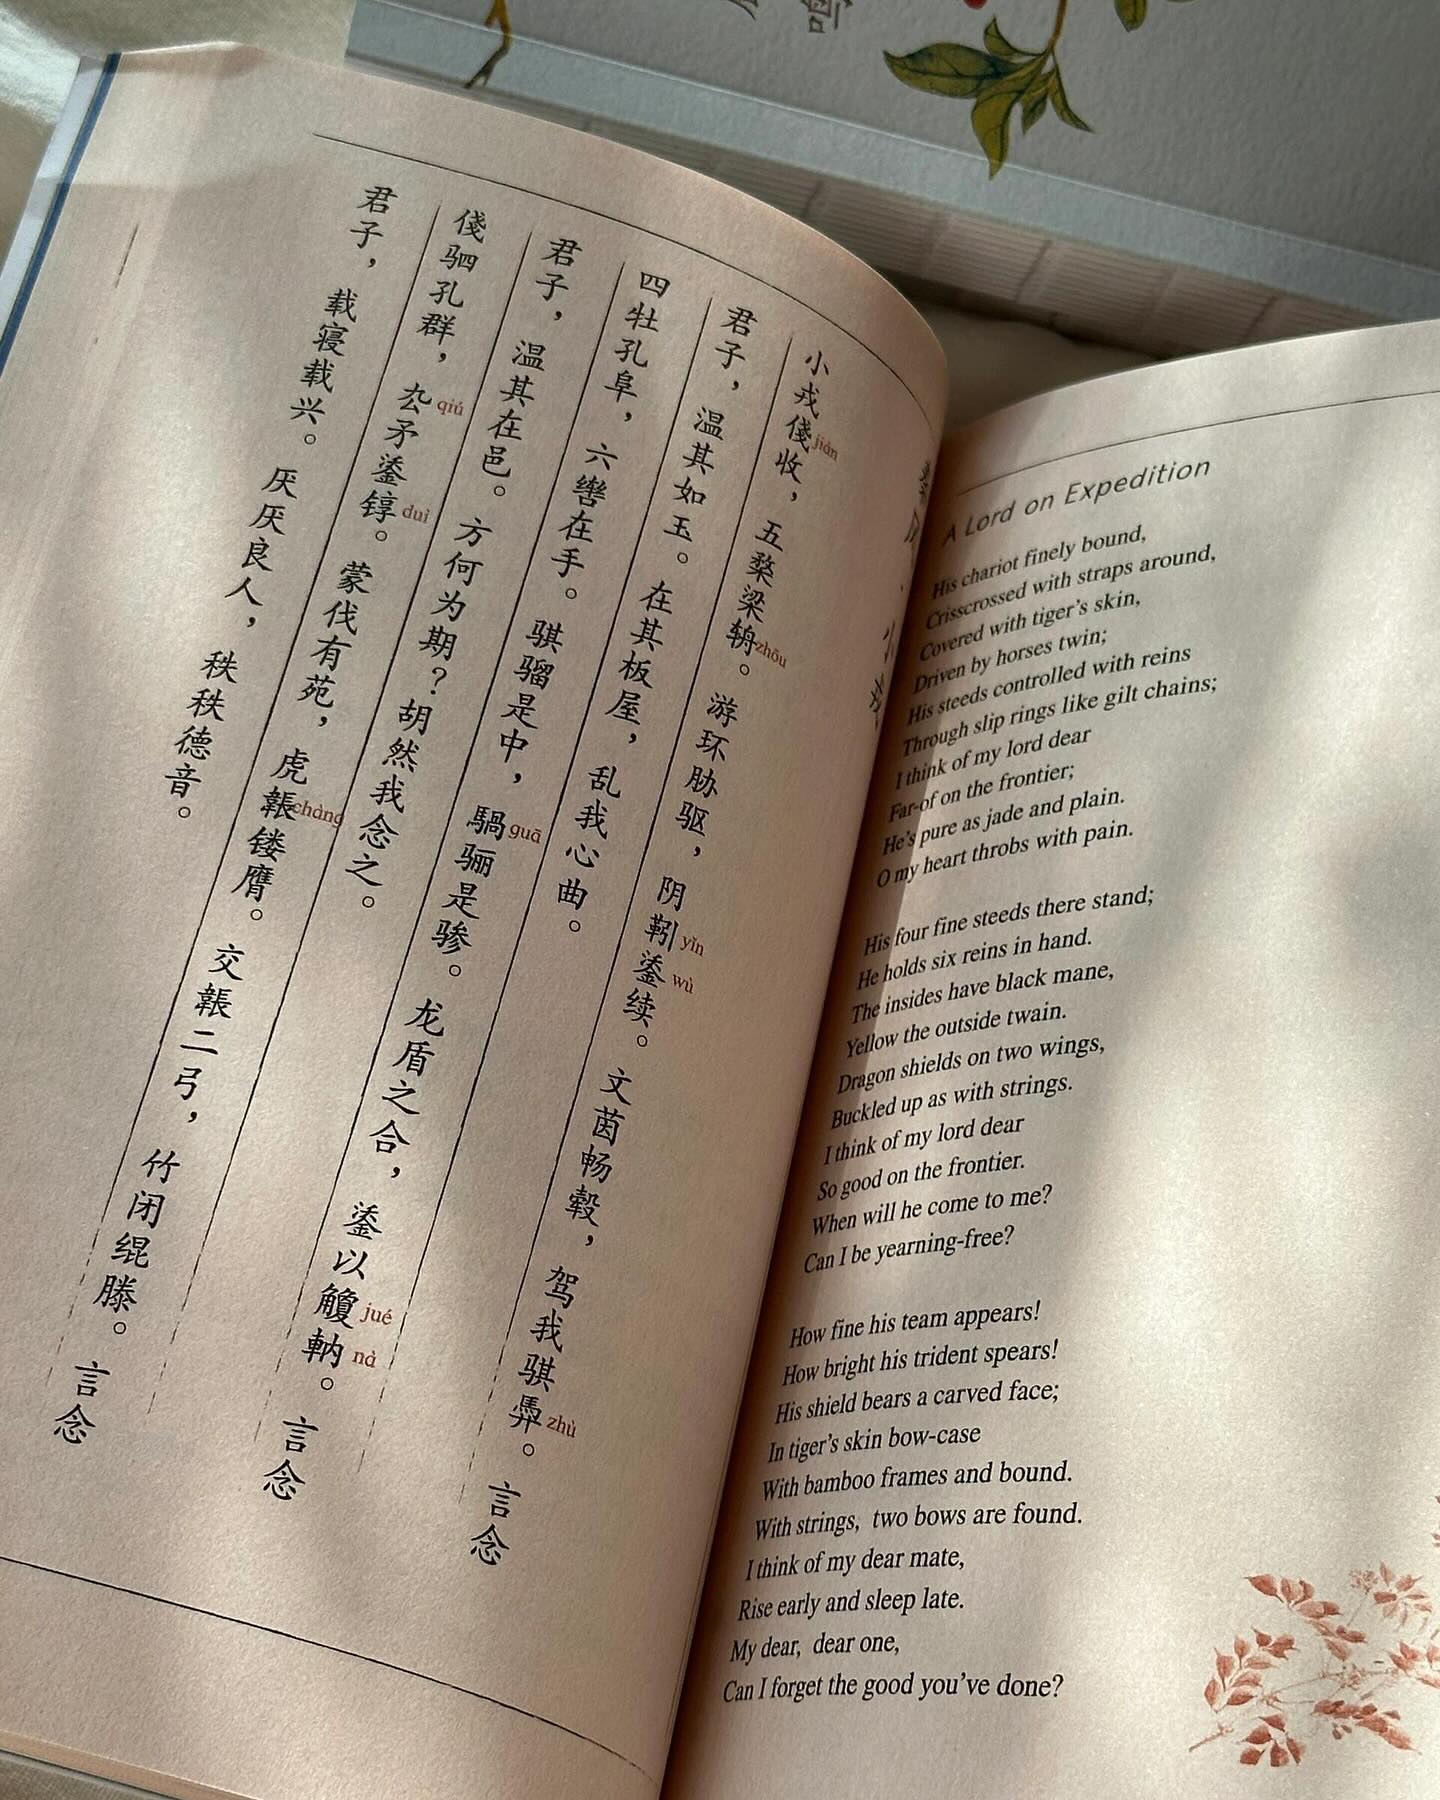 小戎俴jiàn收，五楘梁辀zhōu。游环胁驱，阴靷yǐn鋈wù续。文茵畅毂，驾我骐馵zhù。言念
君子，温其如玉。在其板屋，乱我心曲。
四牡孔阜，六辔在手。骐骝是中，騧guā骊是骖。龙盾之合，鋈以觼jué軜nà。言念
君子，温其在邑。方何为期？胡然我念之。
俴驷孔群，厹qiú矛鋈𬭚duì。蒙伐有苑，虎韔chàng镂膺。交韔二弓，竹闭绲縢。言念
君子，载寝载兴。厌厌良人，秩秩德音。
A Lord on Expedition
His chariot finely bound,
Crisscrossed with straps around,
Covered with tiger's skin,
Driven by horses twin;
His steeds controlled with reins
Through slip rings like gilt chains;
I think of my lord dear
Far-of on the frontier;
He's pure as jade and plain.
O my heart throbs with pain.
His four fine steeds there stand;
He holds six reins in hand.
The insides have black mane,
Yellow the outside twain.
Dragon shields on two wings,
Buckled up as with strings.
I think of my lord dear
So good on the frontier.
When will he come to me?
Can I be yearning-free?
How fine his team appears!
How bright his trident spears!
His shield bears a carved face;
In tiger's skin bow-case
With bamboo frames and bound.
With strings, two bows are found.
I think of my dear mate,
Rise early and sleep late.
My dear, dear one,
Can I forget the good you've done?